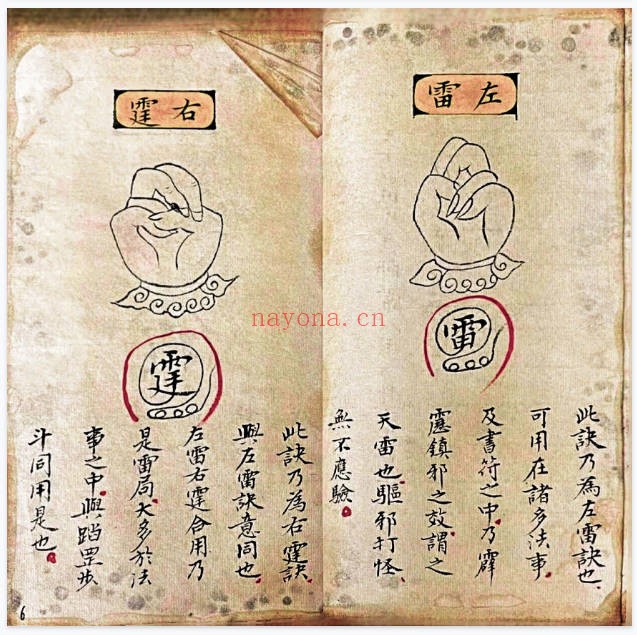 左雷
雷
此訣乃為左雷訣也。
可用在諸多法事。
及書符之中。乃霹
靂鎮邪之效。謂之
天雷也。驅邪打怪、
無不應驗。
右霆
霆
此訣乃為右霆訣。
與左雷訣意同也。
左雷右霆合用乃
是雷局。大多於法
事之中。與踏罡步
斗同用是也。
6
nayona.cn